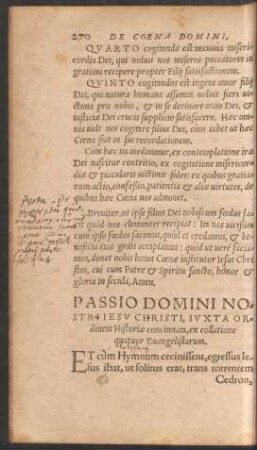 270 DE COENA DOMINI,
QVARTO cogitanda est maxima miseri-
cordia Dei, qui uoluit nos miseros peccatores in
gratiam recipere propter Filij satisfactionem.
QVINTO cogitandus est ingens amor filij
Dei, qui natura humana assumta uoluit fieri ui-
ctima pro nobis, & in se deriuare iram Dei, &
iusticiæ Dei crucis supplicio satisfacere. Hæc om-
nia uult nos cogitare filius Dei, cum iubet ut hæc
Cœna fiat in sui recordationem.
Cum hæc ita meditamur, ex contemplatione iræ
Dei nascitur contritio, ex cogitatione misericor-
diæ & piacularis uictimæ fides: ex quibus gratia-
rum actio, confessio, patientia & aliæ uirtutes, de
quibus hæc Cœna nos admonet.
Breuiter, ut ipse filius Dei nobiscum fœdus fa-
cit quod nos clementer recipiat: ita nos uicissim
cum ipso fœdus facimus, quòd ei credamus, & be-
neficia eius grati accipiamus: quod ut uerè facia-
mus, donet nobis huius Cœnæ institutor Iesus Chri-
stus, cui cum Patre & Spiritu sancto, honor &
gloria in secula, Amen.
PASSIO DOMINI NO-
STRI IESV CHRISTI, IVXTA OR-
dinem Historiæ concinnata, ex collatione
quatuor Euangelistarum.
ET cùm Hymnum cecinissent, egressus Ie-
sus ibat, ut solitus erat, trans torrentem
Cedron,